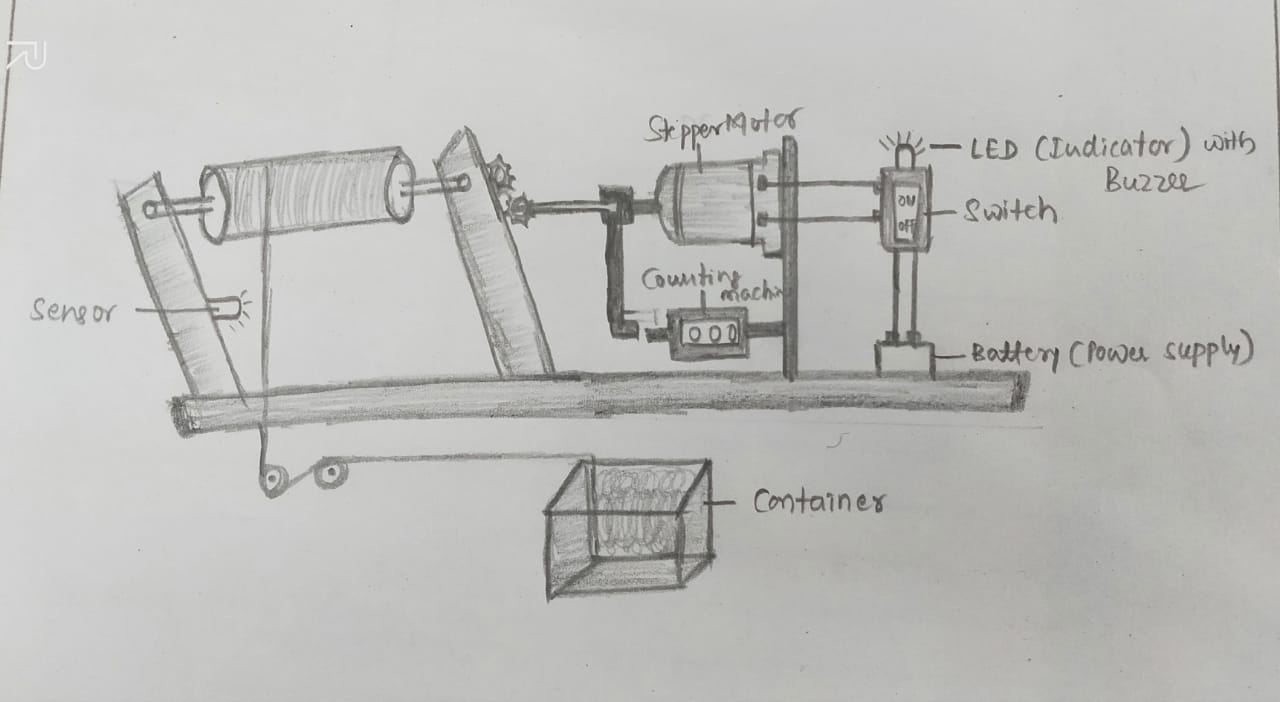 Stepper Motor
LED (Indicator) with
Buzzer
ON
OFF
Switch
Counting
machin
000
Sensor
Battery (Power supply)
Container